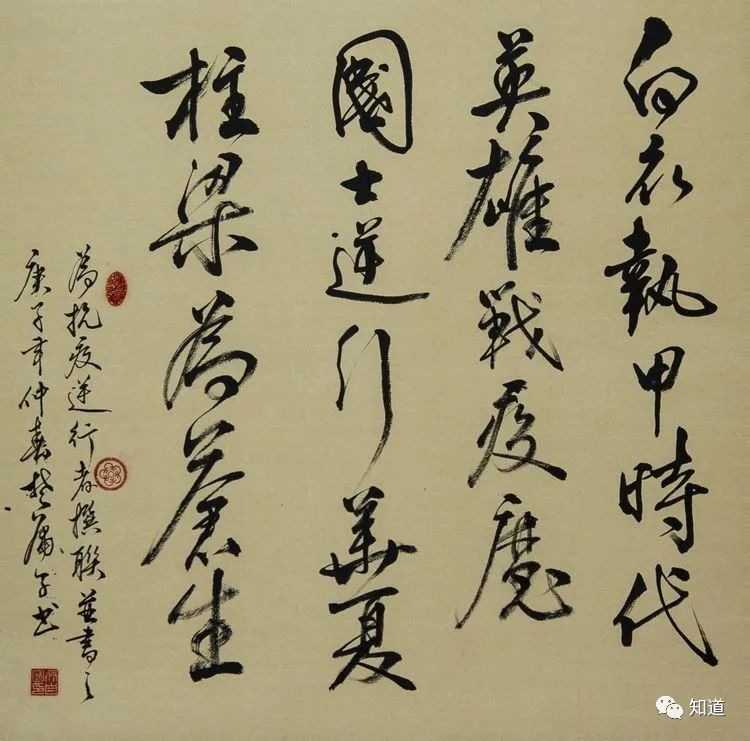 白衣執甲時代
英雄戰疫魔
國士逆行華夏
柱梁為蒼生
為抗疫逆行者撰聯並書之
庚子年仲春楚庸子书
知道